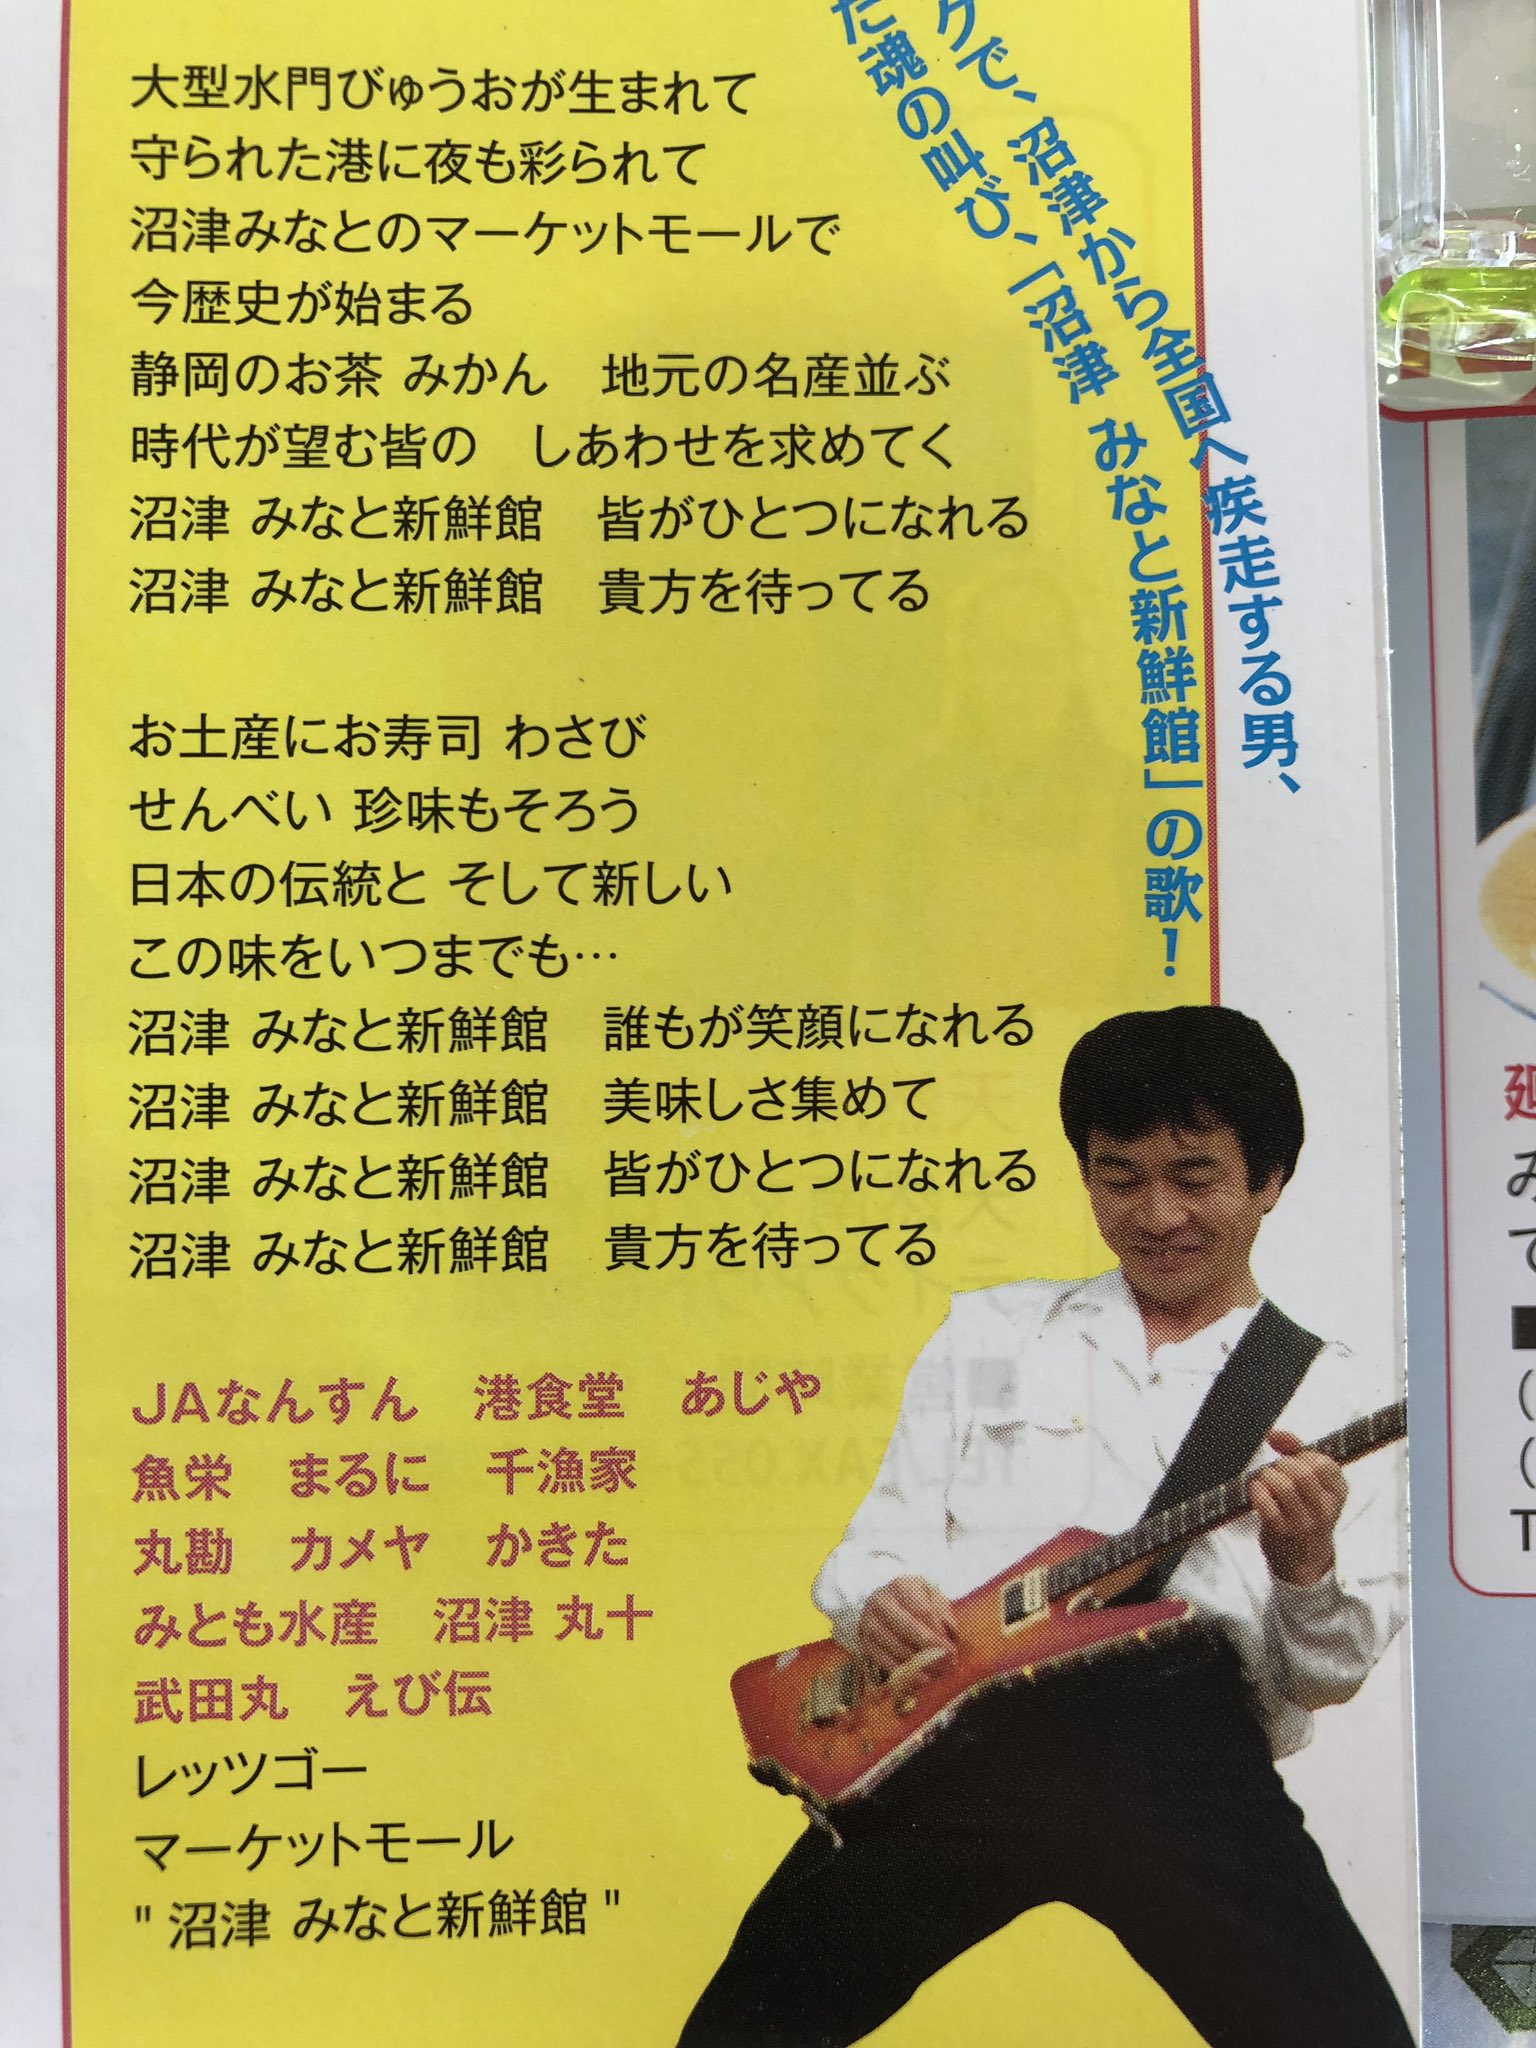 クで、沼津から全国へ疾走する男、
た魂の叫び、「沼津 みなと新鮮館」の歌！
大型水門びゅうおが生まれて
守られた港に夜も彩られて
沼津みなとのマーケットモールで
今歴史が始まる
静岡のお茶 みかん　地元の名産並ぶ
時代が望む皆の　しあわせを求めてく
沼津 みなと新鮮館　皆がひとつになれる
沼津 みなと新鮮館　貴方を待ってる
お土産にお寿司 わさび
せんべい 珍味もそろう
日本の伝統と そして新しい
この味をいつまでも…
沼津 みなと新鮮館　誰もが笑顔になれる
沼津 みなと新鮮館　美味しさ集めて
沼津 みなと新鮮館　皆がひとつになれる
沼津 みなと新鮮館　貴方を待ってる
JAなんすん　港食堂　あじや
魚栄　まるに　千漁家
丸勘　カメヤ　かきた
みとも水産　沼津 丸十
武田丸　えび伝
レッツゴー
マーケットモール
" 沼津 みなと新鮮館 "